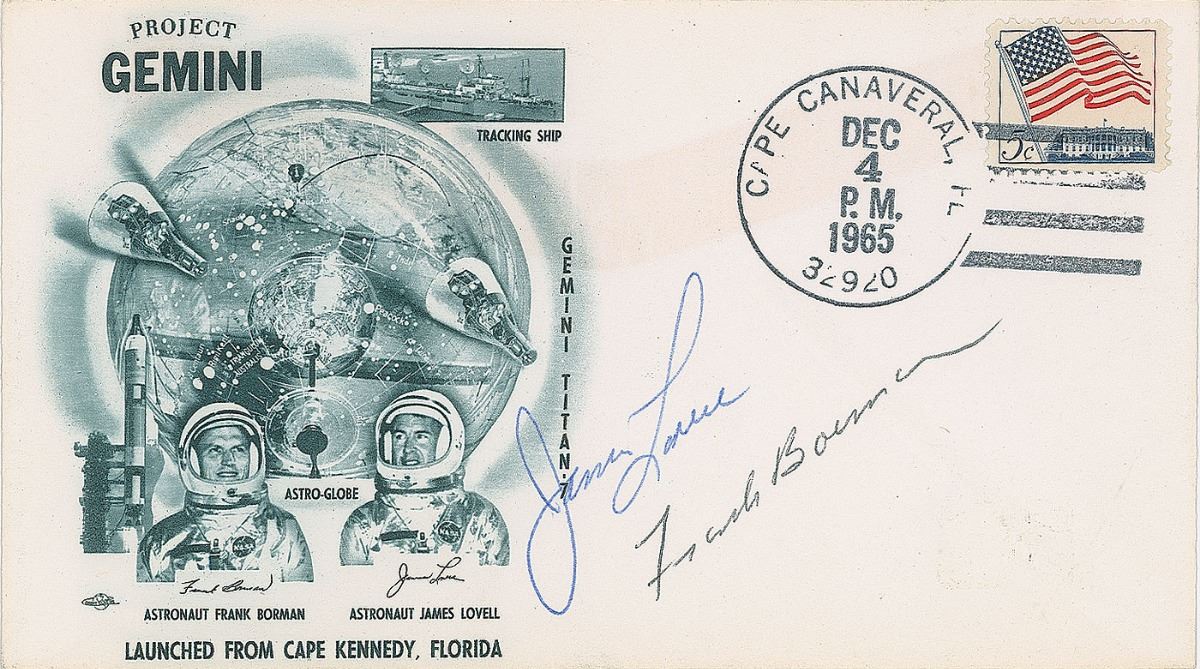 PROJECT
GEMINI
TRACKING SHIP
CAPE CANAVERAL, FL
DEC
4
P. M.
1965
32920
5c
GEMINI TITAN-7
ASTRO-GLOBE
James Lovell
Frank Borman
Frank Borman
James Lovell
NASA
NASA
ASTRONAUT FRANK BORMAN
ASTRONAUT JAMES LOVELL
LAUNCHED FROM CAPE KENNEDY, FLORIDA